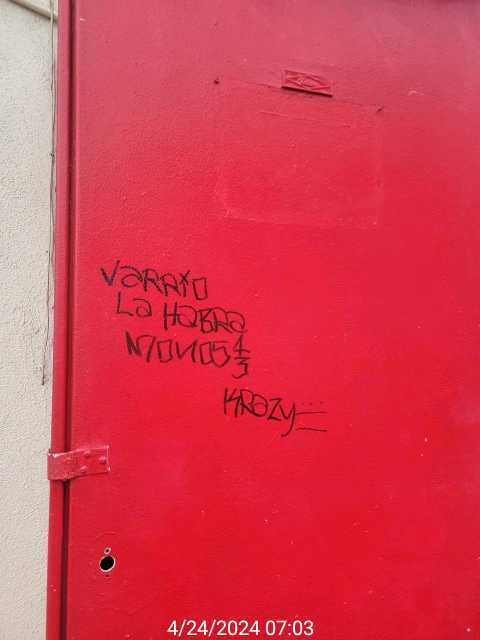 VARRIO
LA HABRA
MONOS 4
3
KRAZY
4/24/2024 07:03